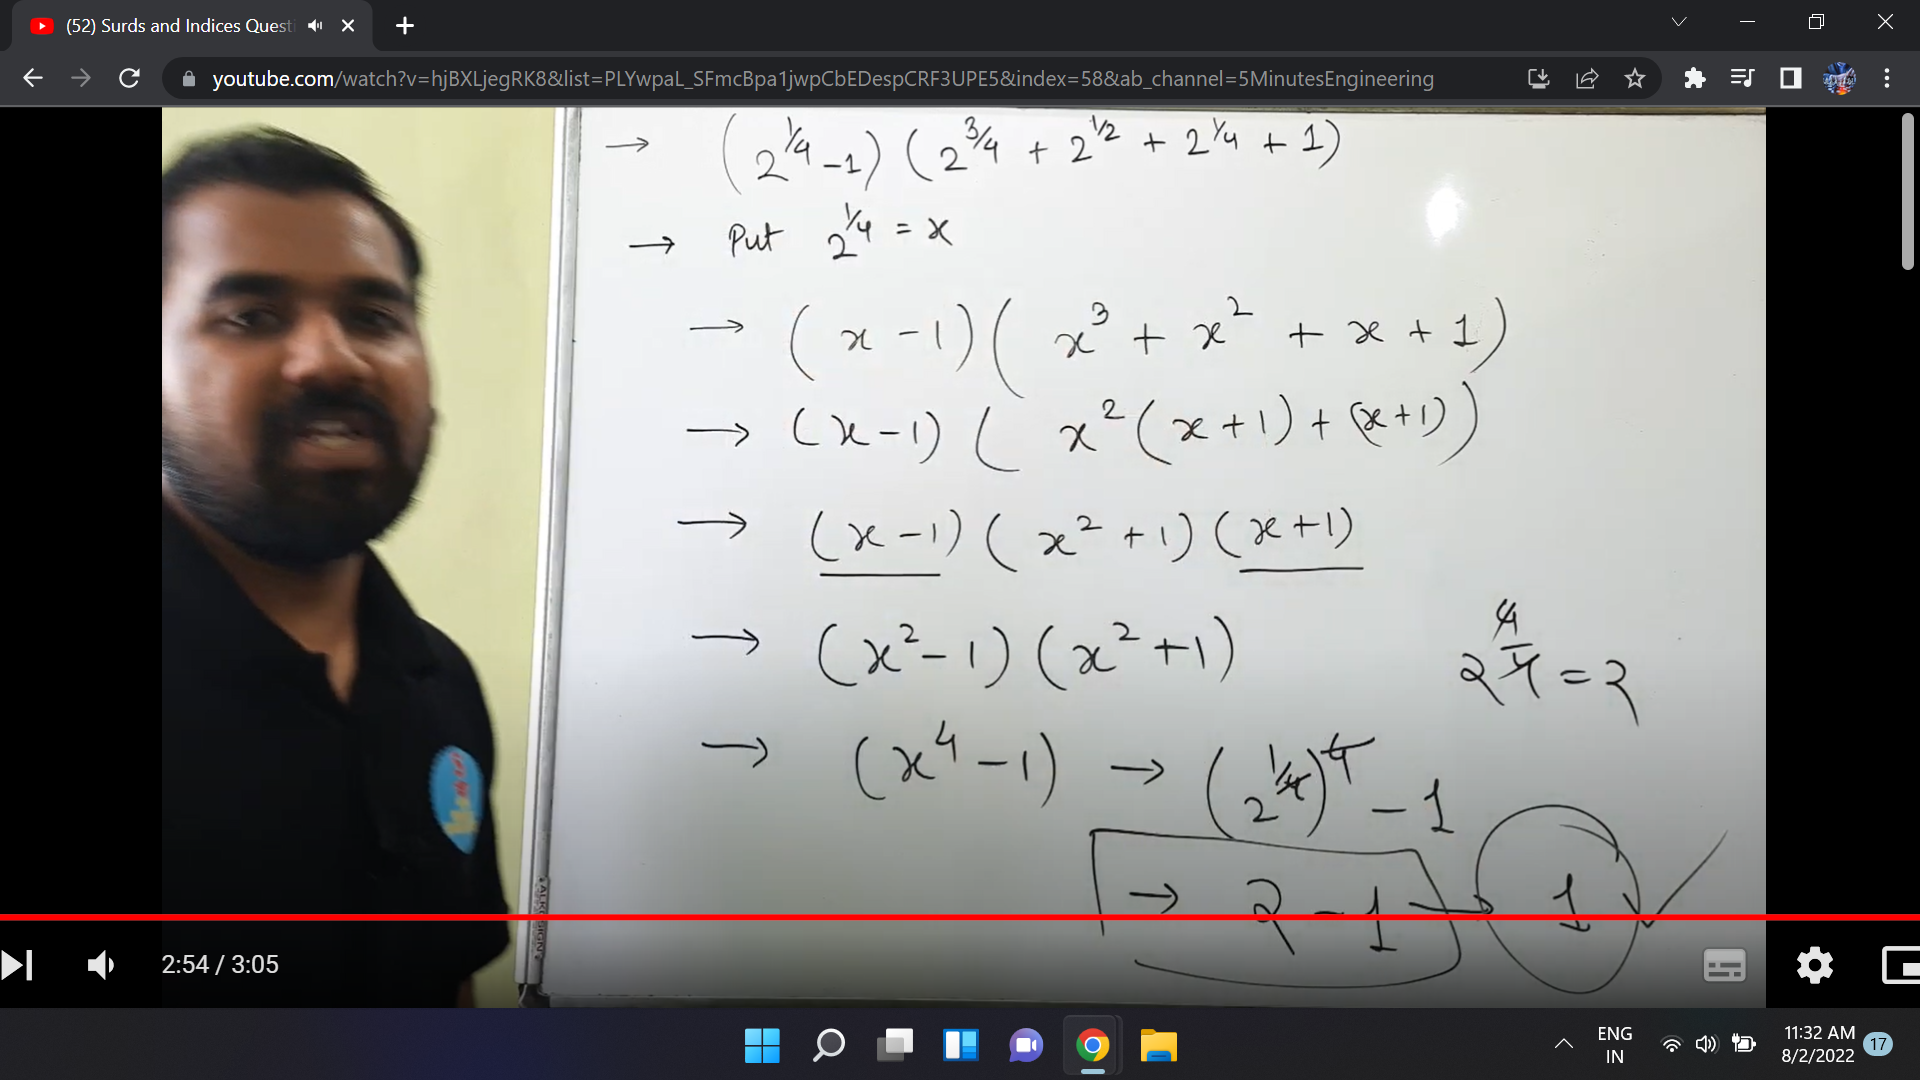 (52) Surds and Indices Questi
youtube.com/watch?v=hjBXLjegRK8&list=PLYwpaL_SFmcBpa1jwpCbEDespCRF3UPE5&index=58&ab_channel=5MinutesEngineering
→ (2^1/4 - 1) (2^3/4 + 2^1/2 + 2^1/4 + 1)
→ Put 2^1/4 = x
→ (x - 1) (x^3 + x^2 + x + 1)
→ (x - 1) (x^2 (x + 1) + (x + 1))
→ (x - 1) (x^2 + 1) (x + 1)
→ (x^2 - 1) (x^2 + 1)
2^4/4 = 2
→ (x^4 - 1) → (2^1/4)^4 - 1
→ 2 - 1 → 1 ✓
2:54 / 3:05
ENG
IN
11:32 AM
8/2/2022
17